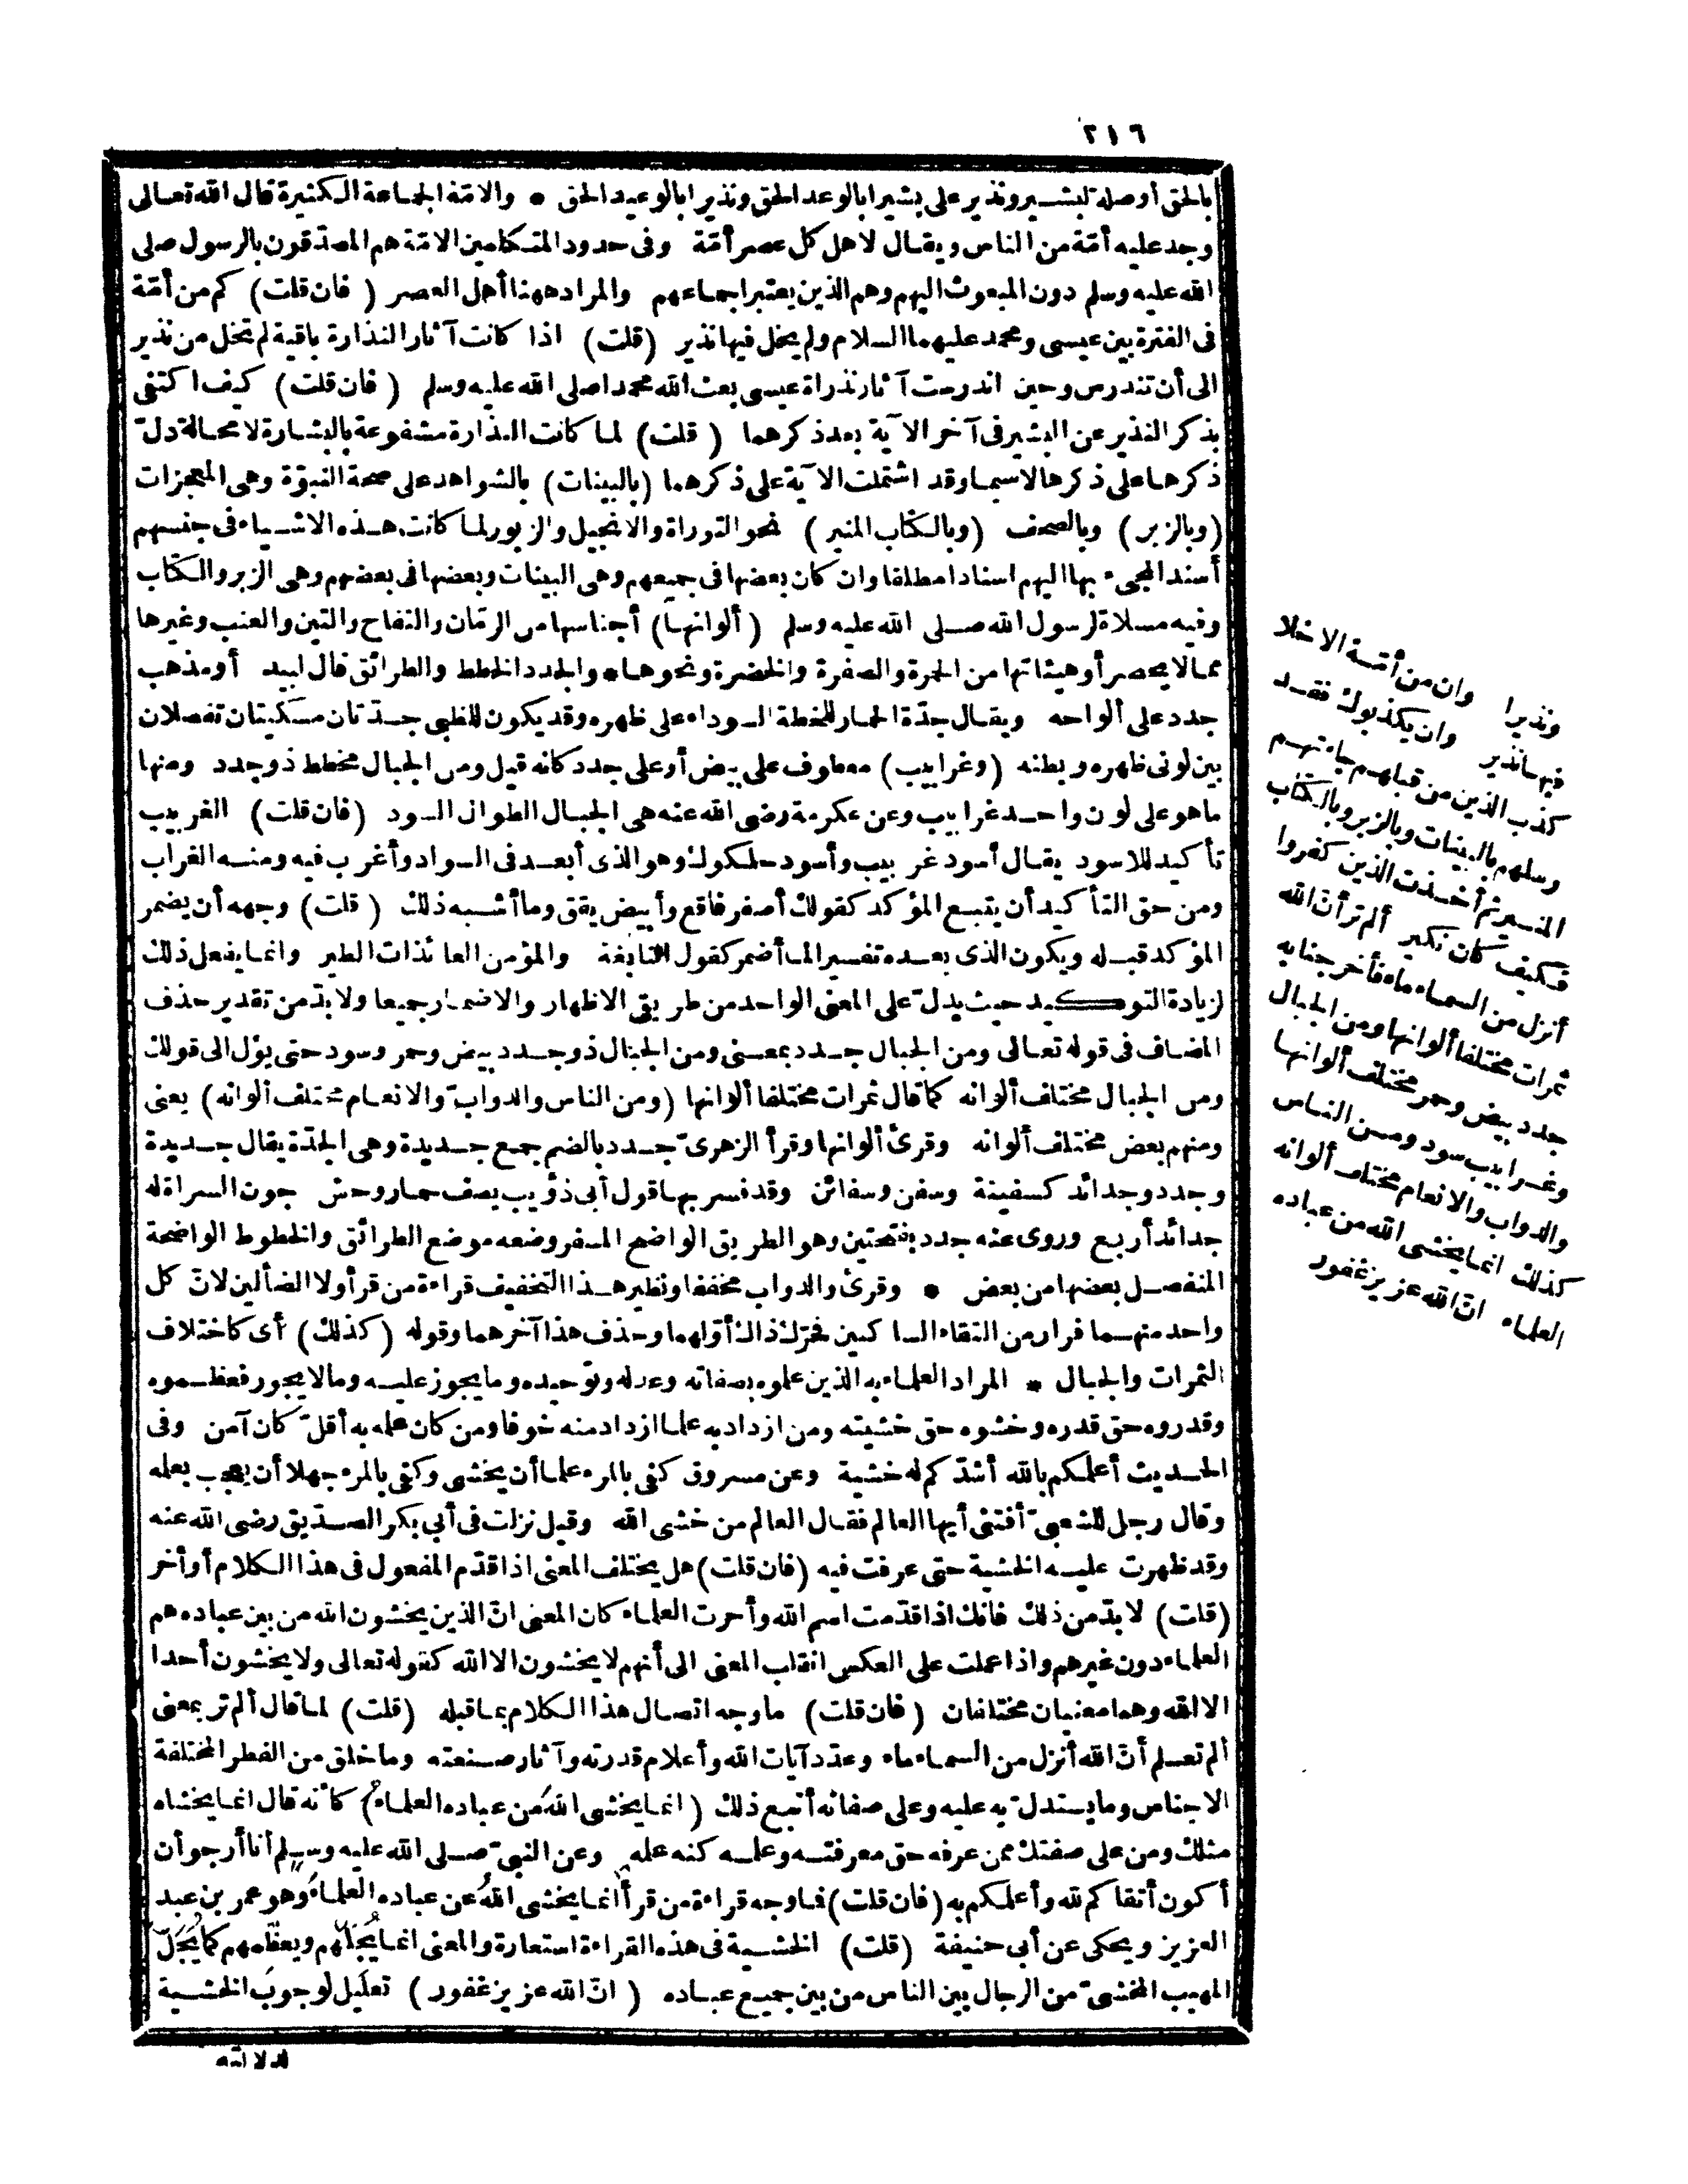 ٢١٦
بالحق أو صلة لبشير ونذير على بشيرا بالوعد الحق ونذيرا بالوعيد الحق * والامّة الجماعة الكثيرة قال الله تعالى
وجد عليه أمّة من الناس ويقال لاهل كل عصر أمّة وفى حدود المتكلمين الامّة هم المصدّقون بالرسول صلى
الله عليه وسلم دون المبعوث اليهم وهم الذين يعتبر اجماعهم والمراد ههنا أهل العصر (فان قلت) كم من أمّة
فى الفترة بين عيسى ومحمد عليهما السلام ولم يخل فيها نذير (قلت) اذا كانت آثار النذارة باقية لم تخل من نذير
الى أن تندرس وحين اندرست آثار نذراة عيسى بعث الله محمدا صلى الله عليه وسلم (فان قلت) كيف اكتفى
بذكر النذير عن البشير فى آخر الآية بعد ذكرهما (قلت) لما كانت النذارة مشفوعة بالبشارة لا محالة دلّ
ذكرها على ذكرها لاسيما وقد اشتملت الآية على ذكرهما (بالبينات) بالشواهد على صحة النبوّة وهى المعجزات
(وبالزبر) وبالصحف (وبالكتاب المنير) نحو التوراة والانجيل والزبور لما كانت هذه الاشياء فى جنسهم
أسند المجىء بها اليهم اسنادا مطلقا وان كان بعضها فى جميعهم وهى البينات وبعضها فى بعضهم وهى الزبر والكتاب
وفيه مسلاة لرسول الله صلى الله عليه وسلم (ألوانها) أجناسها من الرمّان والتفاح والتين والعنب وغيرها
مما لا يحصر أو هيئاتها من الحمرة والصفرة والخضرة ونحوها * والجدد الخطط والطرائق قال لبيد أو مذهب
جدد على ألواحه ويقال جدّة الحمار للخطة السوداء على ظهره وقد يكون للظبى جدّتان مسكيتان تفصلان
بين لونى ظهره وبطنه (وغرابيب) معطوف على بيض أو على جدد كانه قيل ومن الجبال مخطط ذو جدد ومنها
ما هو على لون واحد غرابيب وعن عكرمة رضى الله عنه هى الجبال الطوال السود (فان قلت) الغربيب
تأكيد للاسود يقال أسود غربيب وأسود حلكوك وهو الذى أبعد فى السواد وأغرب فيه ومنه الغراب
ومن حق التأكيد أن يتبع المؤكد كقولك أصفر فاقع وأبيض يقق وما أشبه ذلك (قلت) وجهه أن يضمر
المؤكد قبله ويكون الذى بعده تفسيرا لما أضمر كقول النابغة والمؤمن العائذات الطير وانما يفعل ذلك
لزيادة التوكيد حيث يدلّ على المعنى الواحد من طريق الاظهار والاضمار جميعا ولا بدّ من تقدير حذف
المضاف فى قوله تعالى ومن الجبال جدد بمعنى ومن الجبال ذو جدد بيض وحمر وسود حتى يؤل الى قولك
ومن الجبال مختلف ألوانه كما قال ثمرات مختلفا ألوانها (ومن الناس والدوابّ والانعام مختلف ألوانه) يعنى
ومنهم بعض مختلف ألوانه وقرئ ألوانها وقرأ الزهرىّ جدد بالضم جمع جديدة وهى الجدّة يقال جديدة
وجدد وجدائد كسفينة وسفن وسفائن وقد فسر بها قول أبى ذؤيب يصف حمار وحش جون السراة له
جدائد أربع وروى عنه جدد بفتحتين وهو الطريق الواضح المسفر وضعه موضع الطرائق والخطوط الواضحة
المنفصل بعضها من بعض * وقرئ والدواب مخففا ونظير هذا التخفيف قراءة من قرأ ولا الضألين لانّ كل
واحد منهما فرار من التقاء الساكنين فحرّك ذاك أوّلهما وحذف هذا آخرهما وقوله (كذلك) أى كاختلاف
الثمرات والجبال * المراد العلماء به الذين علموه بصفاته وعدله وتوحيده وما يجوز عليه وما لا يجوز فعظموه
وقدروه حق قدره وخشوه حق خشيته ومن ازداد به علما ازداد منه خوفا ومن كان علمه به أقلّ كان آمن وفى
الحديث أعلمكم بالله أشدّكم له خشية وعن مسروق كفى بالمرء علما أن يخشى وكفى بالمرء جهلا أن يعجب بعلمه
وقال رجل للشعبىّ أفتنى أيها العالم فقال العالم من خشى الله وقيل نزلت فى أبى بكر الصدّيق رضى الله عنه
وقد ظهرت عليه الخشية حتى عرفت فيه (فان قلت) هل يختلف المعنى اذا قدّم المفعول فى هذا الكلام أو أخر
(قلت) لا بدّ من ذلك فانك اذا قدّمت اسم الله وأخرت العلماء كان المعنى انّ الذين يخشون الله من بين عباده هم
العلماء دون غيرهم واذا عملت على العكس انقلب المعنى الى أنهم لا يخشون الا الله كقوله تعالى ولا يخشون أحدا
الا الله وهما معنيان مختلفان (فان قلت) ما وجه اتصال هذا الكلام بما قبله (قلت) لما قال ألم تر بمعنى
ألم تعلم أنّ الله أنزل من السماء ماء وعدّد آيات الله وأعلام قدرته وآثار صنعته وما خلق من الفطر المختلفة
الاجناس وما يستدلّ به عليه وعلى صفاته أتبع ذلك (انما يخشى اللهَ من عباده العلماءُ) كأنه قال انما يخشاه
مثلك ومن على صفتك ممن عرفه حق معرفته وعلمه كنه علمه وعن النبىّ صلى الله عليه وسلم أنا أرجو أن
أكون أتقاكم لله وأعلمكم به (فان قلت) فما وجه قراءة من قرأ انما يخشى اللهُ من عباده العلماءَ وهو عمر بن عبد
العزيز ويحكى عن أبى حنيفة (قلت) الخشية فى هذه القراءة استعارة والمعنى انما يُجلّهم ويعظّمهم كما يُجَلّ
المهيب المخشىّ من الرجال بين الناس من بين جميع عباده (انّ الله عزيز غفور) تعليل لوجوب الخشية
لدلالته
ونذيرا وان من أمّة الا خلا
فيها نذير وان يكذبوك فقد
كذب الذين من قبلهم جاءتهم
رسلهم بالبينات وبالزبر وبالكتاب
المنير ثم أخذت الذين كفروا
فكيف كان نكير ألم تر أنّ الله
أنزل من السماء ماء فأخرجنا به
ثمرات مختلفا ألوانها ومن الجبال
جدد بيض وحمر مختلف ألوانها
وغرابيب سود ومن الناس
والدواب والانعام مختلف ألوانه
كذلك انما يخشى الله من عباده
العلماء انّ الله عزيز غفور